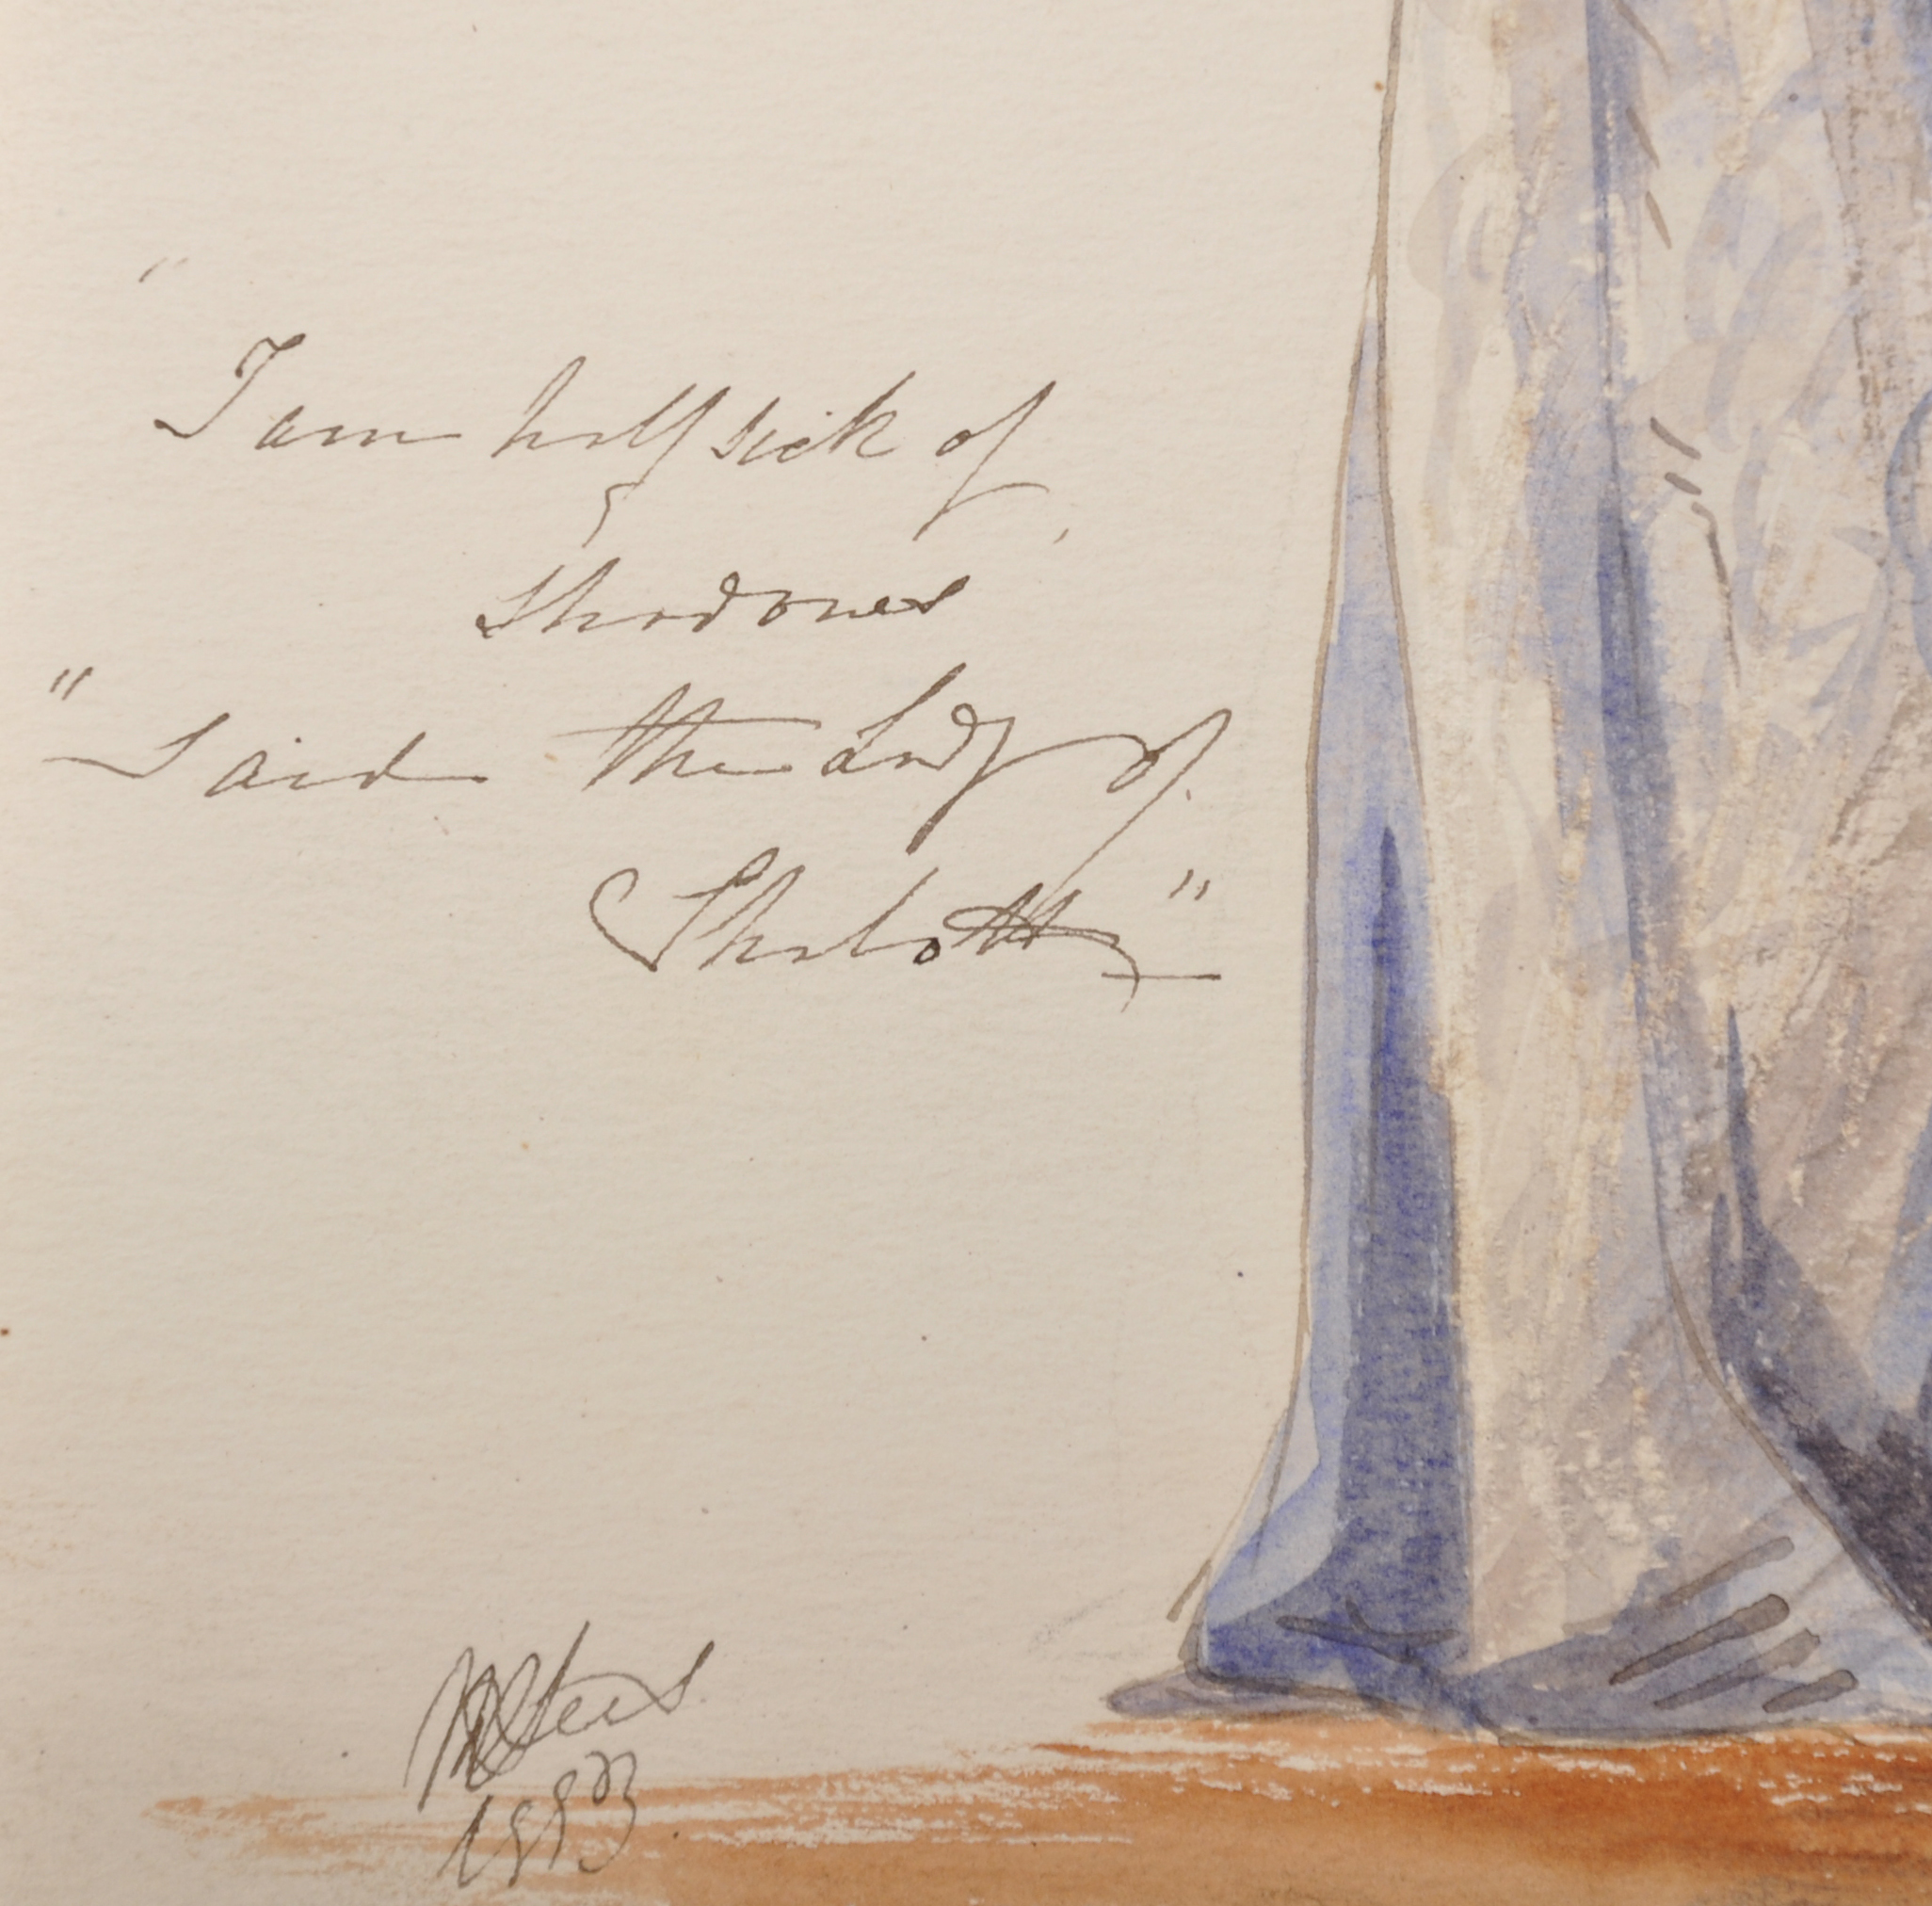 "I am half sick of
Shadows
"Said the Lady of
Shalott"
1883